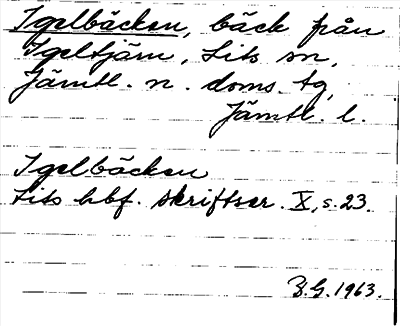 Igelbäcken, bäck från
Igeltjärn, Lits sn,
Jämtl. n. doms. tg,
Jämtl. l.
Igelbäcken
Lits hbf. skriftser. X, s. 23.
B.G. 1963.